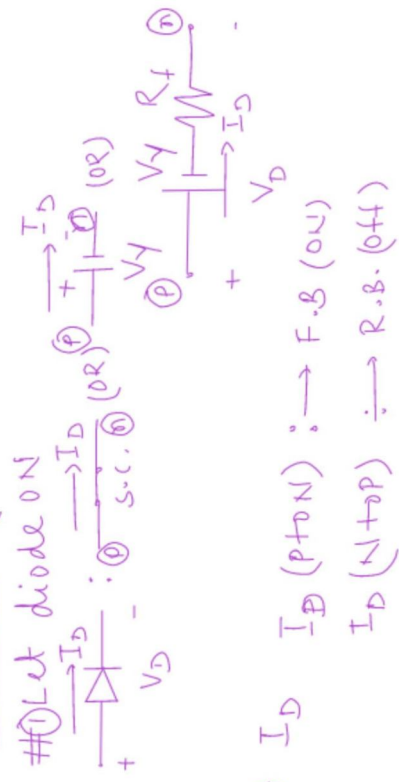 #① Let diode ON
I_D
+ V_D -
:
Ⓟ → I_D ⓝ
S.C.
(OR)
Ⓟ → I_D ⓝ
+ -
Vγ
(OR)
Ⓟ Vγ Rf ⓝ
→ I_D
+ V_D -
I_D I_D (P to N) : → F.B (ON)
I_D (N to P) : → R.B. (Off)